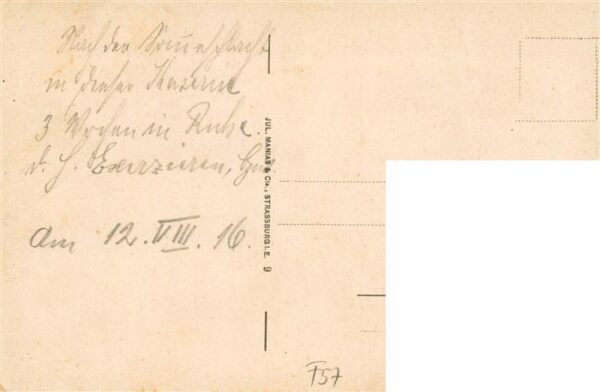 Nach der Sommeschlacht
in dieser Kaserne
3 Wochen in Ruhe.
d. h. Exerzieren,
am 12. VIII. 16.
JUL. MANIAS & Cie., STRASSBURG i. E. 9
F57